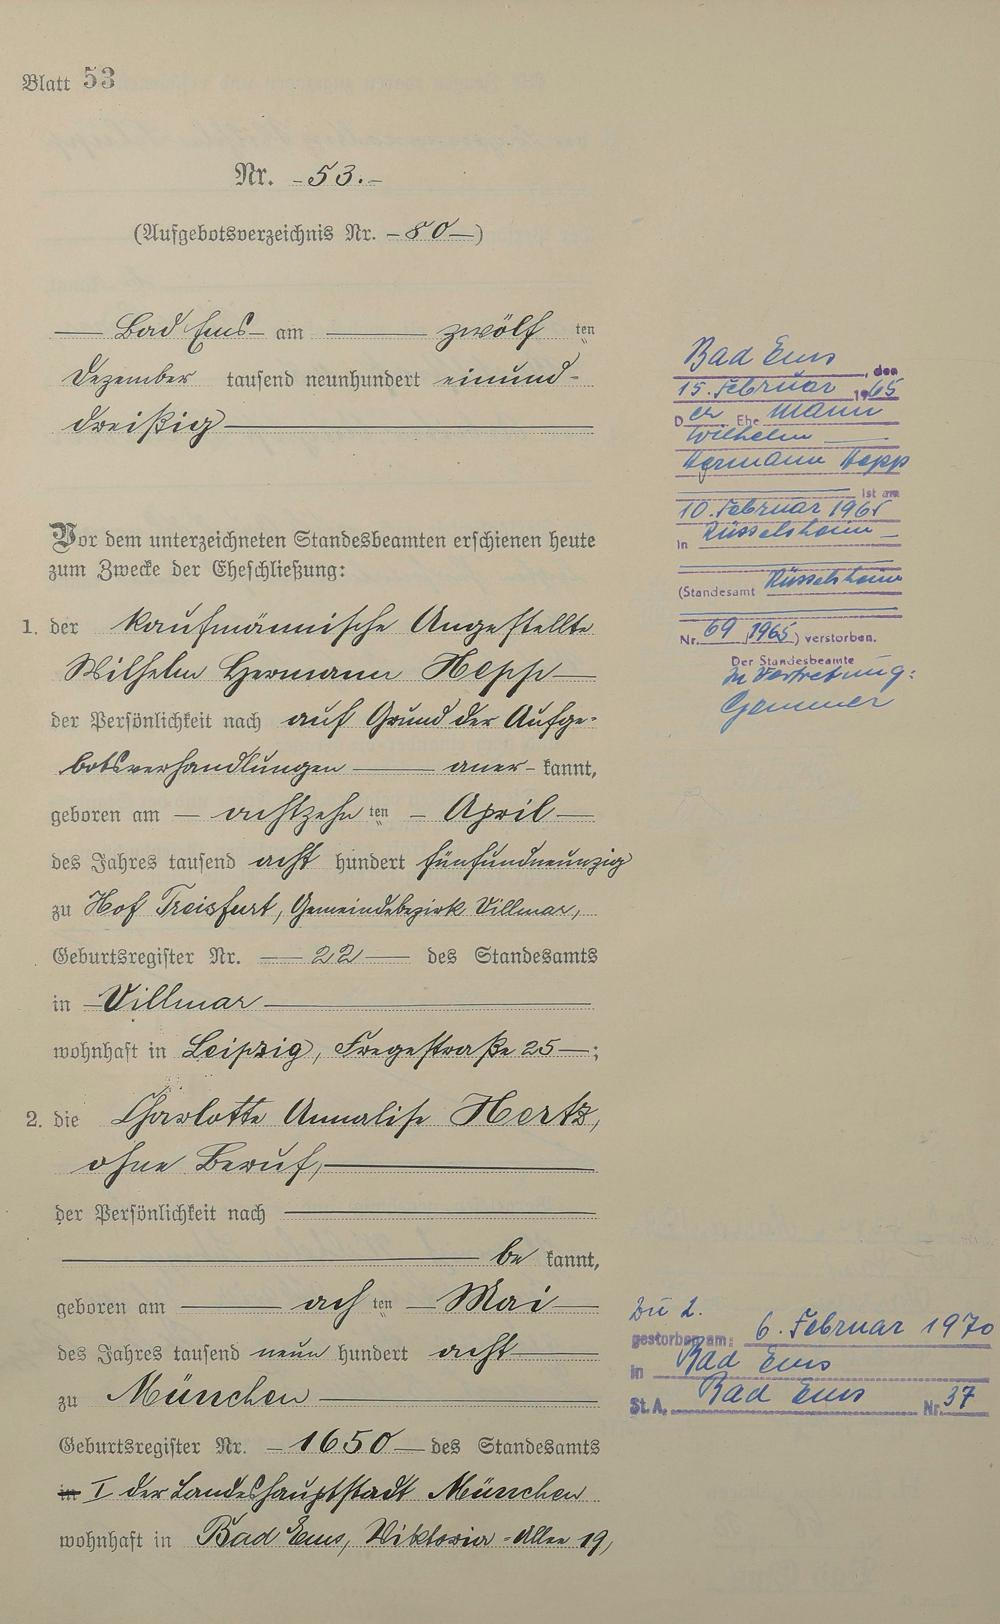 Blatt 53
Nr. -53.-
(Aufgebotsverzeichnis Nr. -80-)
Bad Ems - am zwölf ten
Dezember tausend neunhundert einund-
dreißig
Vor dem unterzeichneten Standesbeamten erschienen heute
zum Zwecke der Eheschließung:
1. der kaufmännische Angestellte
Wilhelm Hermann Hepp
der Persönlichkeit nach auf Grund der Aufge-
botsverhandlungen aner- kannt,
geboren am achtzehn ten April
des Jahres tausend acht hundert fünfundneunzig
zu Hof Treisfurt, Gemeindebezirk Villmar,
Geburtsregister Nr. 22 des Standesamts
in Villmar
wohnhaft in Leipzig, Fregestraße 25 ;
2. die Charlotte Annalise Hertz,
ohne Beruf,
der Persönlichkeit nach
be kannt,
geboren am ach ten Mai
des Jahres tausend neun hundert acht
zu München
Geburtsregister Nr. 1650 des Standesamts
in I der Landeshauptstadt München
wohnhaft in Bad Ems, Viktoria-Allee 19,
Bad Ems, den
15. Februar 1965
Der Ehe Mann
Wilhelm
Hermann Hepp
ist am
10. Februar 1965
in Rüsselsheim
(Standesamt Rüsselsheim
Nr. 69 1965) verstorben.
Der Standesbeamte
In Vertretung:
Zu 2.
gestorben am: 6. Februar 1970
in Bad Ems
St.A. Bad Ems Nr. 37